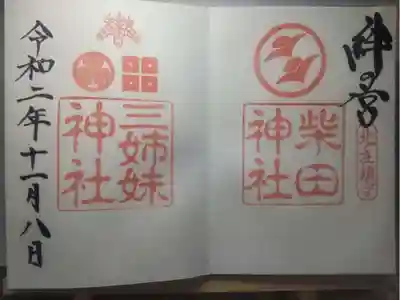 絆の宮
柴田
神社
三姉妹
神社
令和二年十一月八日